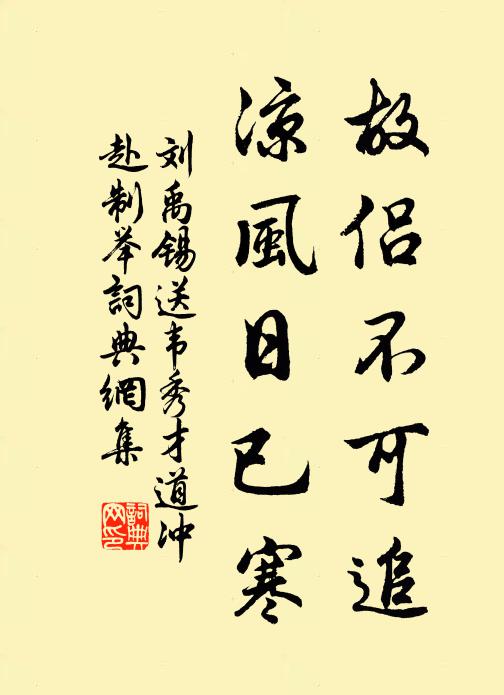 故侣不可追
凉風日已寒
刘禹锡送韦秀才道冲
赴制举詞典網集
詞典
网印